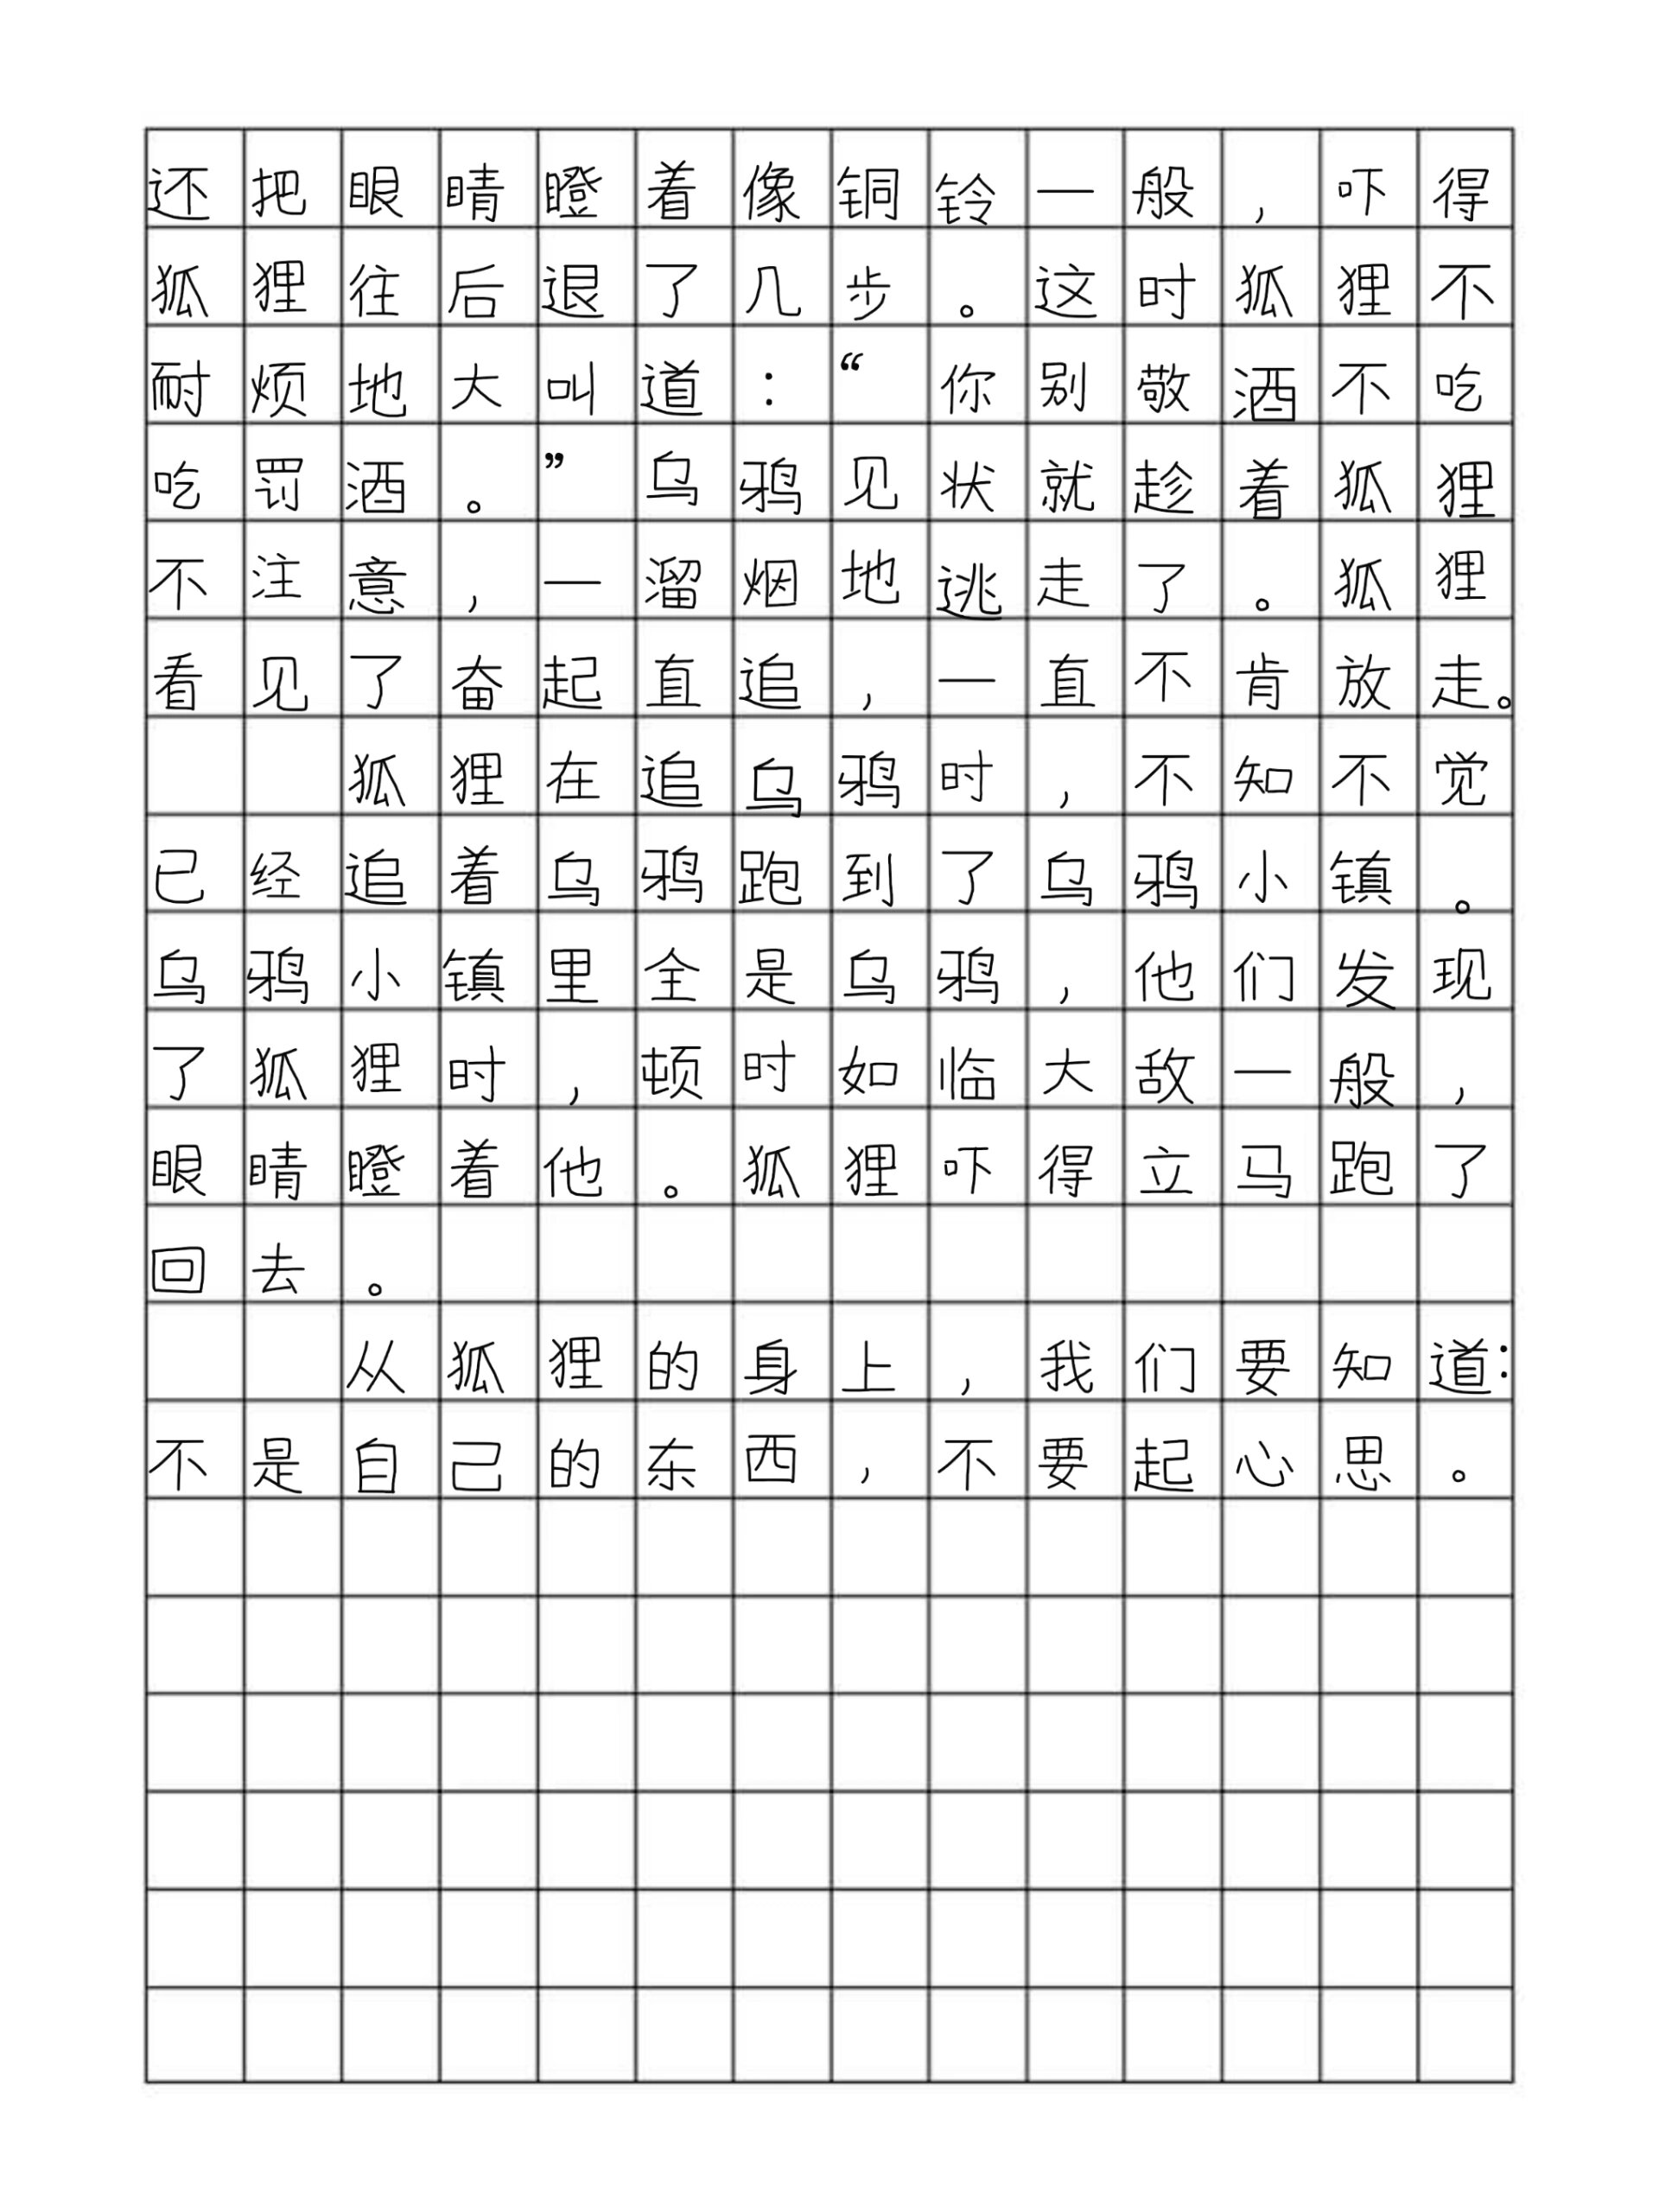 还把眼睛瞪着像铜铃一般，吓得
狐狸往后退了几步。这时狐狸不
耐烦地大叫道：“你别敬酒不吃
吃罚酒。”乌鸦见状就趁着狐狸
不注意，一溜烟地逃走了。狐狸
看见了奋起直追，一直不肯放走。
狐狸在追乌鸦时，不知不觉
已经追着乌鸦跑到了乌鸦小镇。
乌鸦小镇里全是乌鸦，他们发现
了狐狸时，顿时如临大敌一般，
眼睛瞪着他。狐狸吓得立马跑了
回去。
从狐狸的身上，我们要知道：
不是自己的东西，不要起心思。